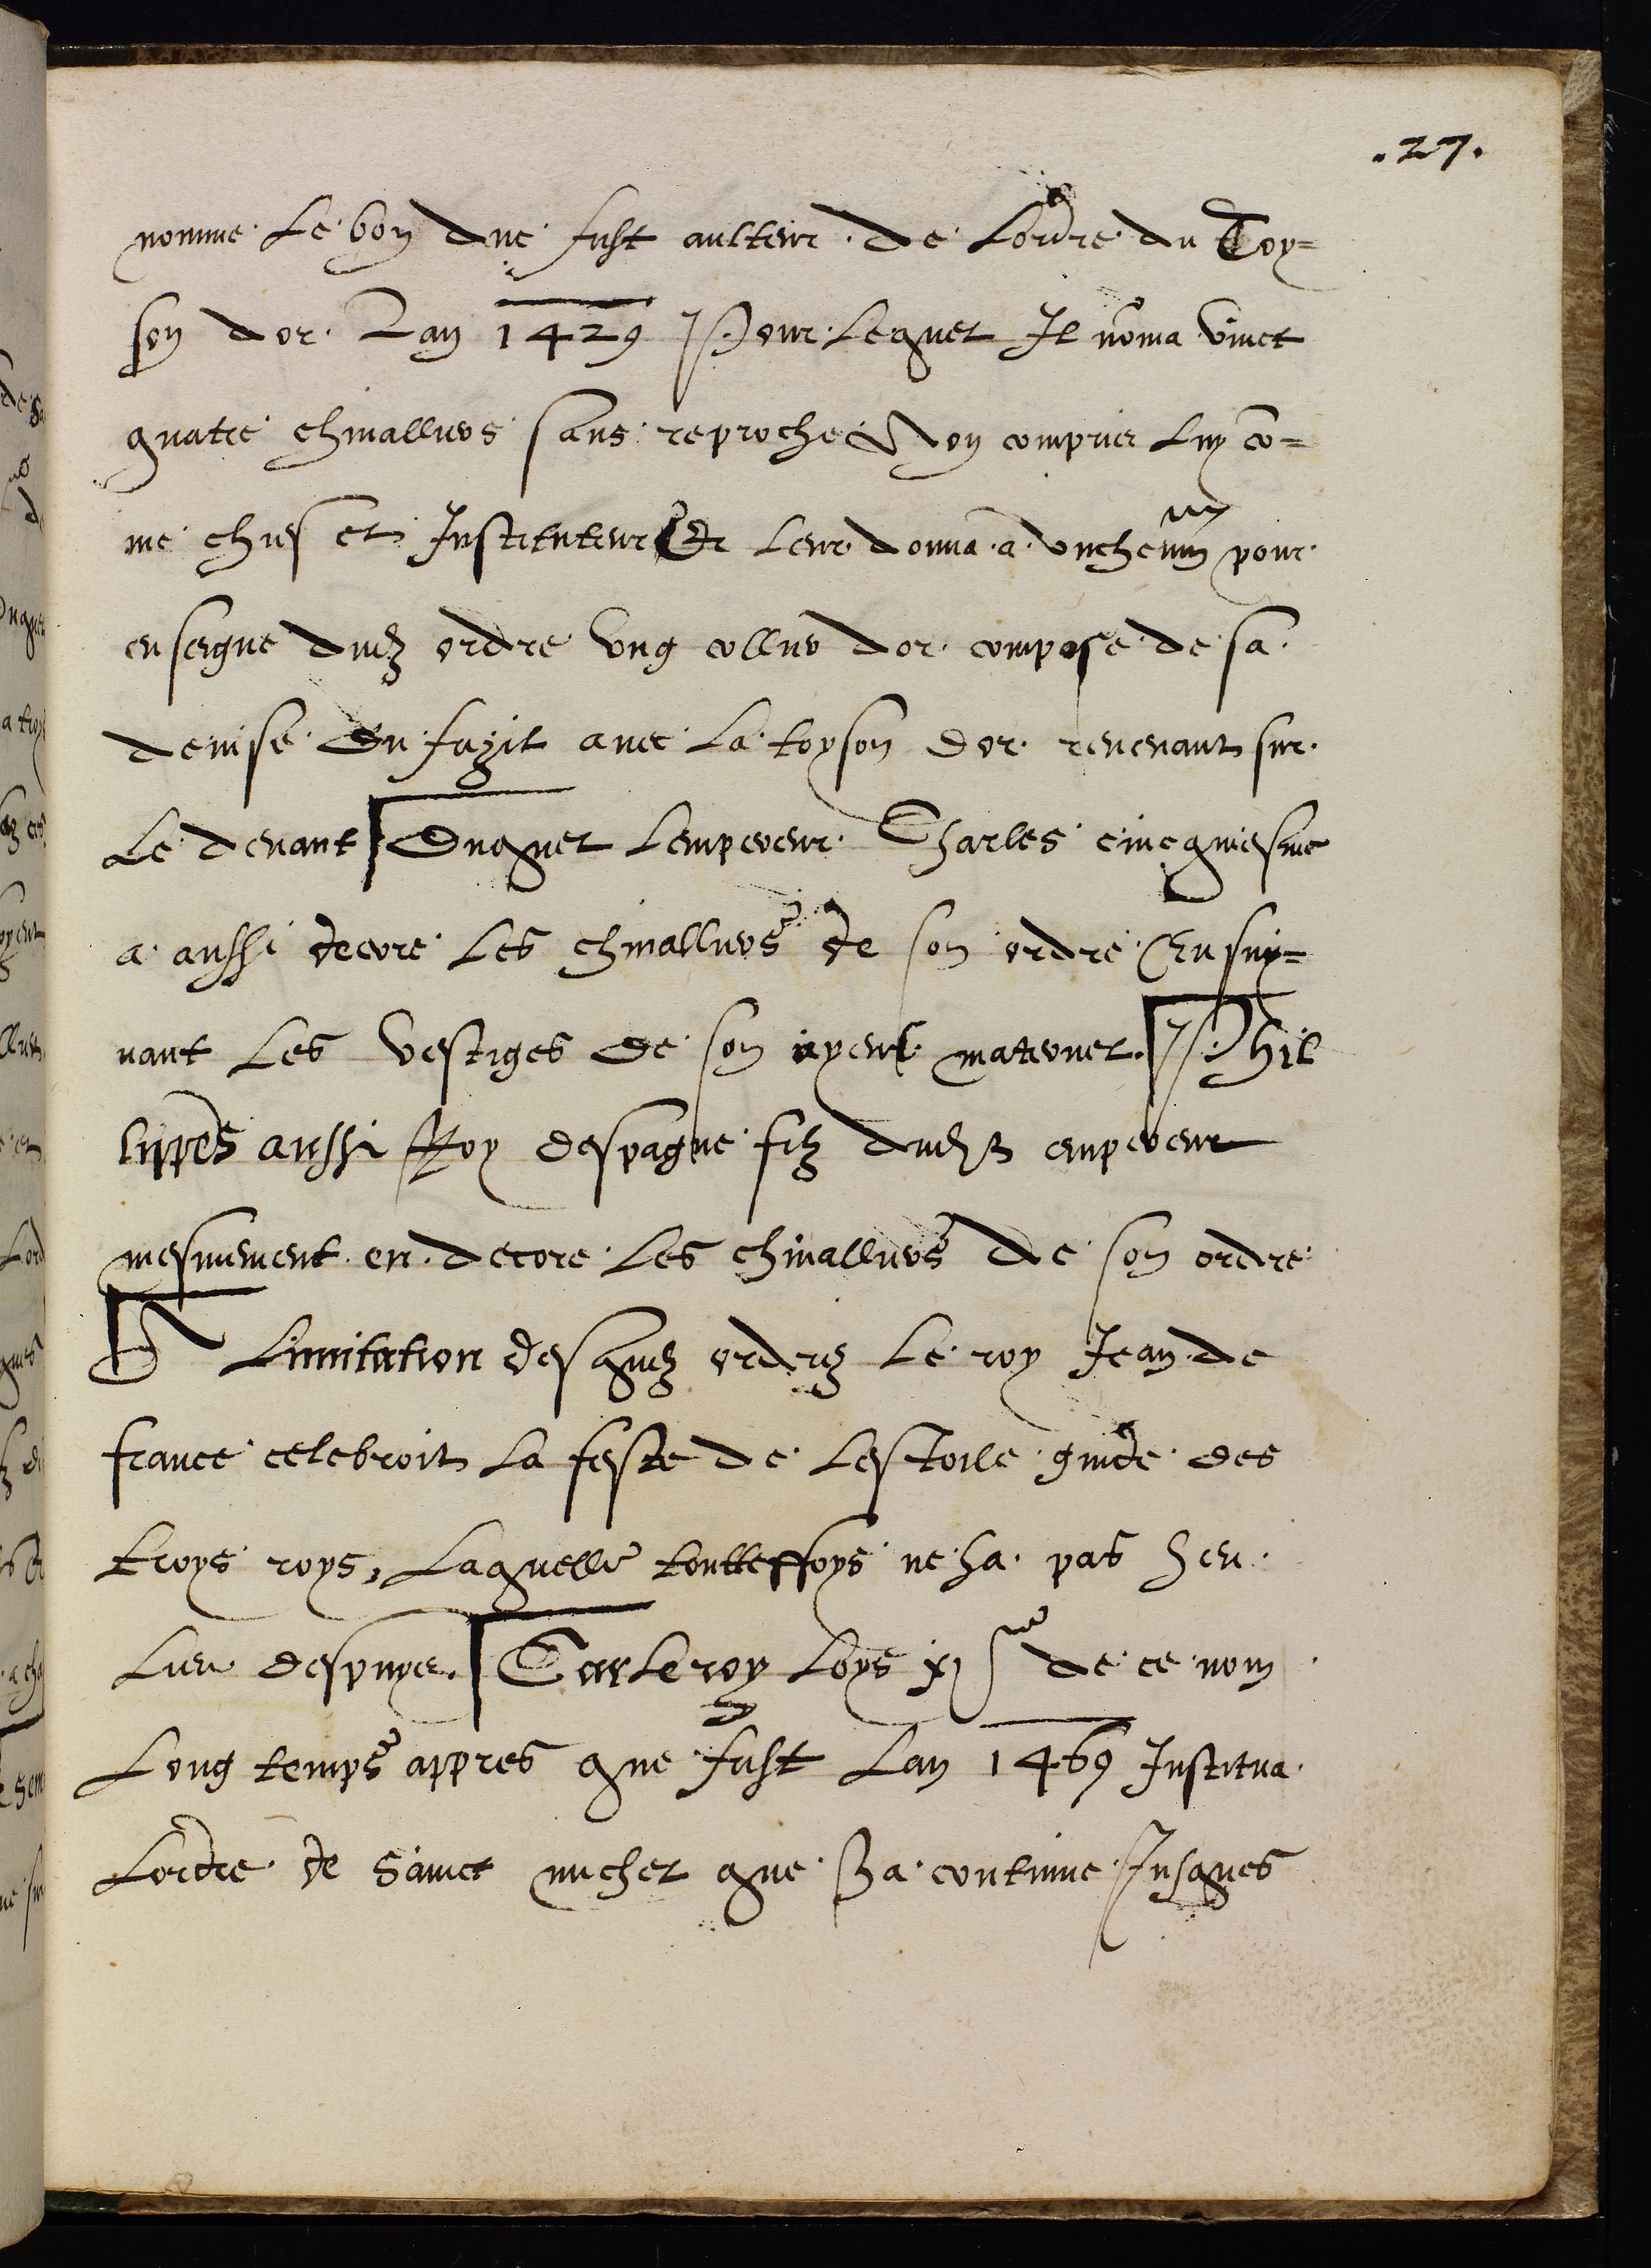 .27.
nomme Le bon duc fust aulteur de Lordre du Toy=
son dor. Lan 1429 Pour Lequel Il nõma vinct
quatre chivalliers sans reproche Non compris Luy cõ=
me chief et Instituteur Et Leur donna a unchcun pour
enseigne dudz ordre ung collier dor compose de sa
devise Du fuzil avec La toyson dor revenant sur
Le devant Duquel Lempereur Charles cincquiesme
a aussi decore Les chivalliers de son ordre Ensuy=
vant Les vestiges de son ayeul maternel. Phil
lippes aussi Roy despagne filz dudz empereur
mesmement en decore Les chivalliers de son ordre
A Limitation desquelz ordres Le roy Jean de
france celebroit La feste de Lestoile guide des
troys roys, Laquelle touttesfoys ne ha pas heu
Lieu despuys. Car Le roy Loys xi^e de ce nom
Long temps appres que fust Lan 1469 Institua
Lordre de Sainct michel que Ba continue Jusques